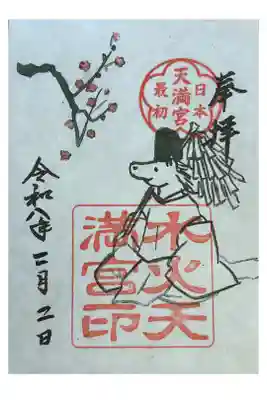 奉拝
日本
最初
天満宮
水火天
満宮印
令和八年二月二日